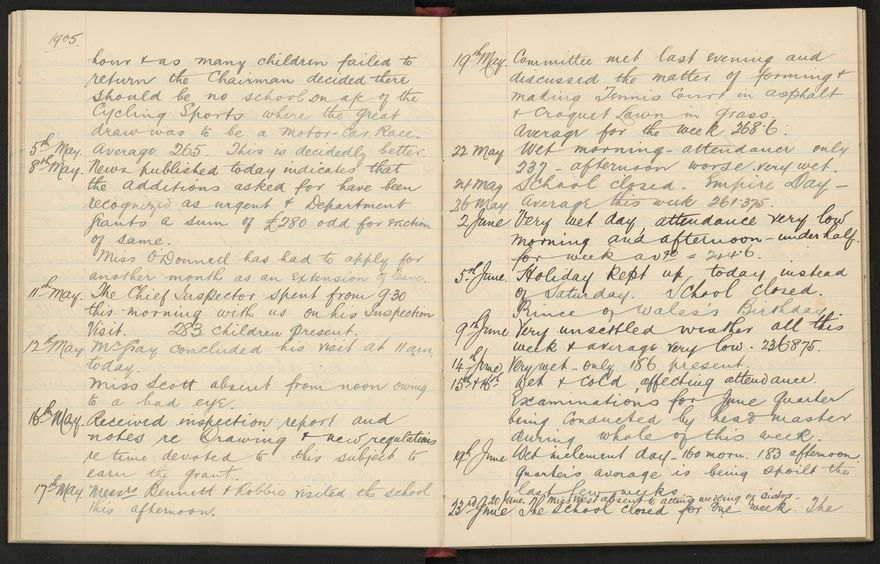 1905.
hour & as many children failed to
return the Chairman decided there
should be no school on a/c of the
Cycling Sports where the great
draw was to be a Motor-Car Race.
5th May. Average. 265. This is decidedly better.
8th May. News published today indicates that
the additions asked for have been
recognized as urgent & Department
grants a sum of £280 odd for erection
of same.
Miss O'Donnell has had to apply for
another month as an extension of leave.
11th May. The Chief Inspector spent from 9.30
this morning with us on his Inspection
Visit. 283 children present.
12th May Mr Gray concluded his visit at 11 am
today.
Miss Scott absent from noon owing
to a bad eye.
16th May. Received inspection report and
notes re Drawing & new regulations
re time devoted to this subject to
earn the grant.
17th May Messrs Bennett & Robbie visited the school
this afternoon.
19th May. Committee met last evening and
discussed the matter of forming &
making Tennis Court in asphalt
& Croquet Lawn in grass.
Average for the week 268.6.
22 May Wet morning - attendance only
237 - afternoon worse. very wet.
24 May School closed. Empire Day -
26 May Average this week 261.375.
2 June Very wet day, attendance very low
morning and afternoon - under half.
for week = 244.6.
5th June. Holiday kept up today instead
of Saturday. School closed.
Prince of Wales's Birthday.
9th June Very unsettled weather all this
week & average very low. 236.875.
14th June Very wet - only 186 present.
15th & 16th Wet & cold affecting attendance.
Examinations for June Quarter
being conducted by head master
during whole of this week.
19th June Wet inclement day - 160 morn. 183 afternoon
Quarter's average is being spoilt the
last few weeks.
20 June Miss West absent to attend wedding of sister -
23rd June The School closed for one week. The